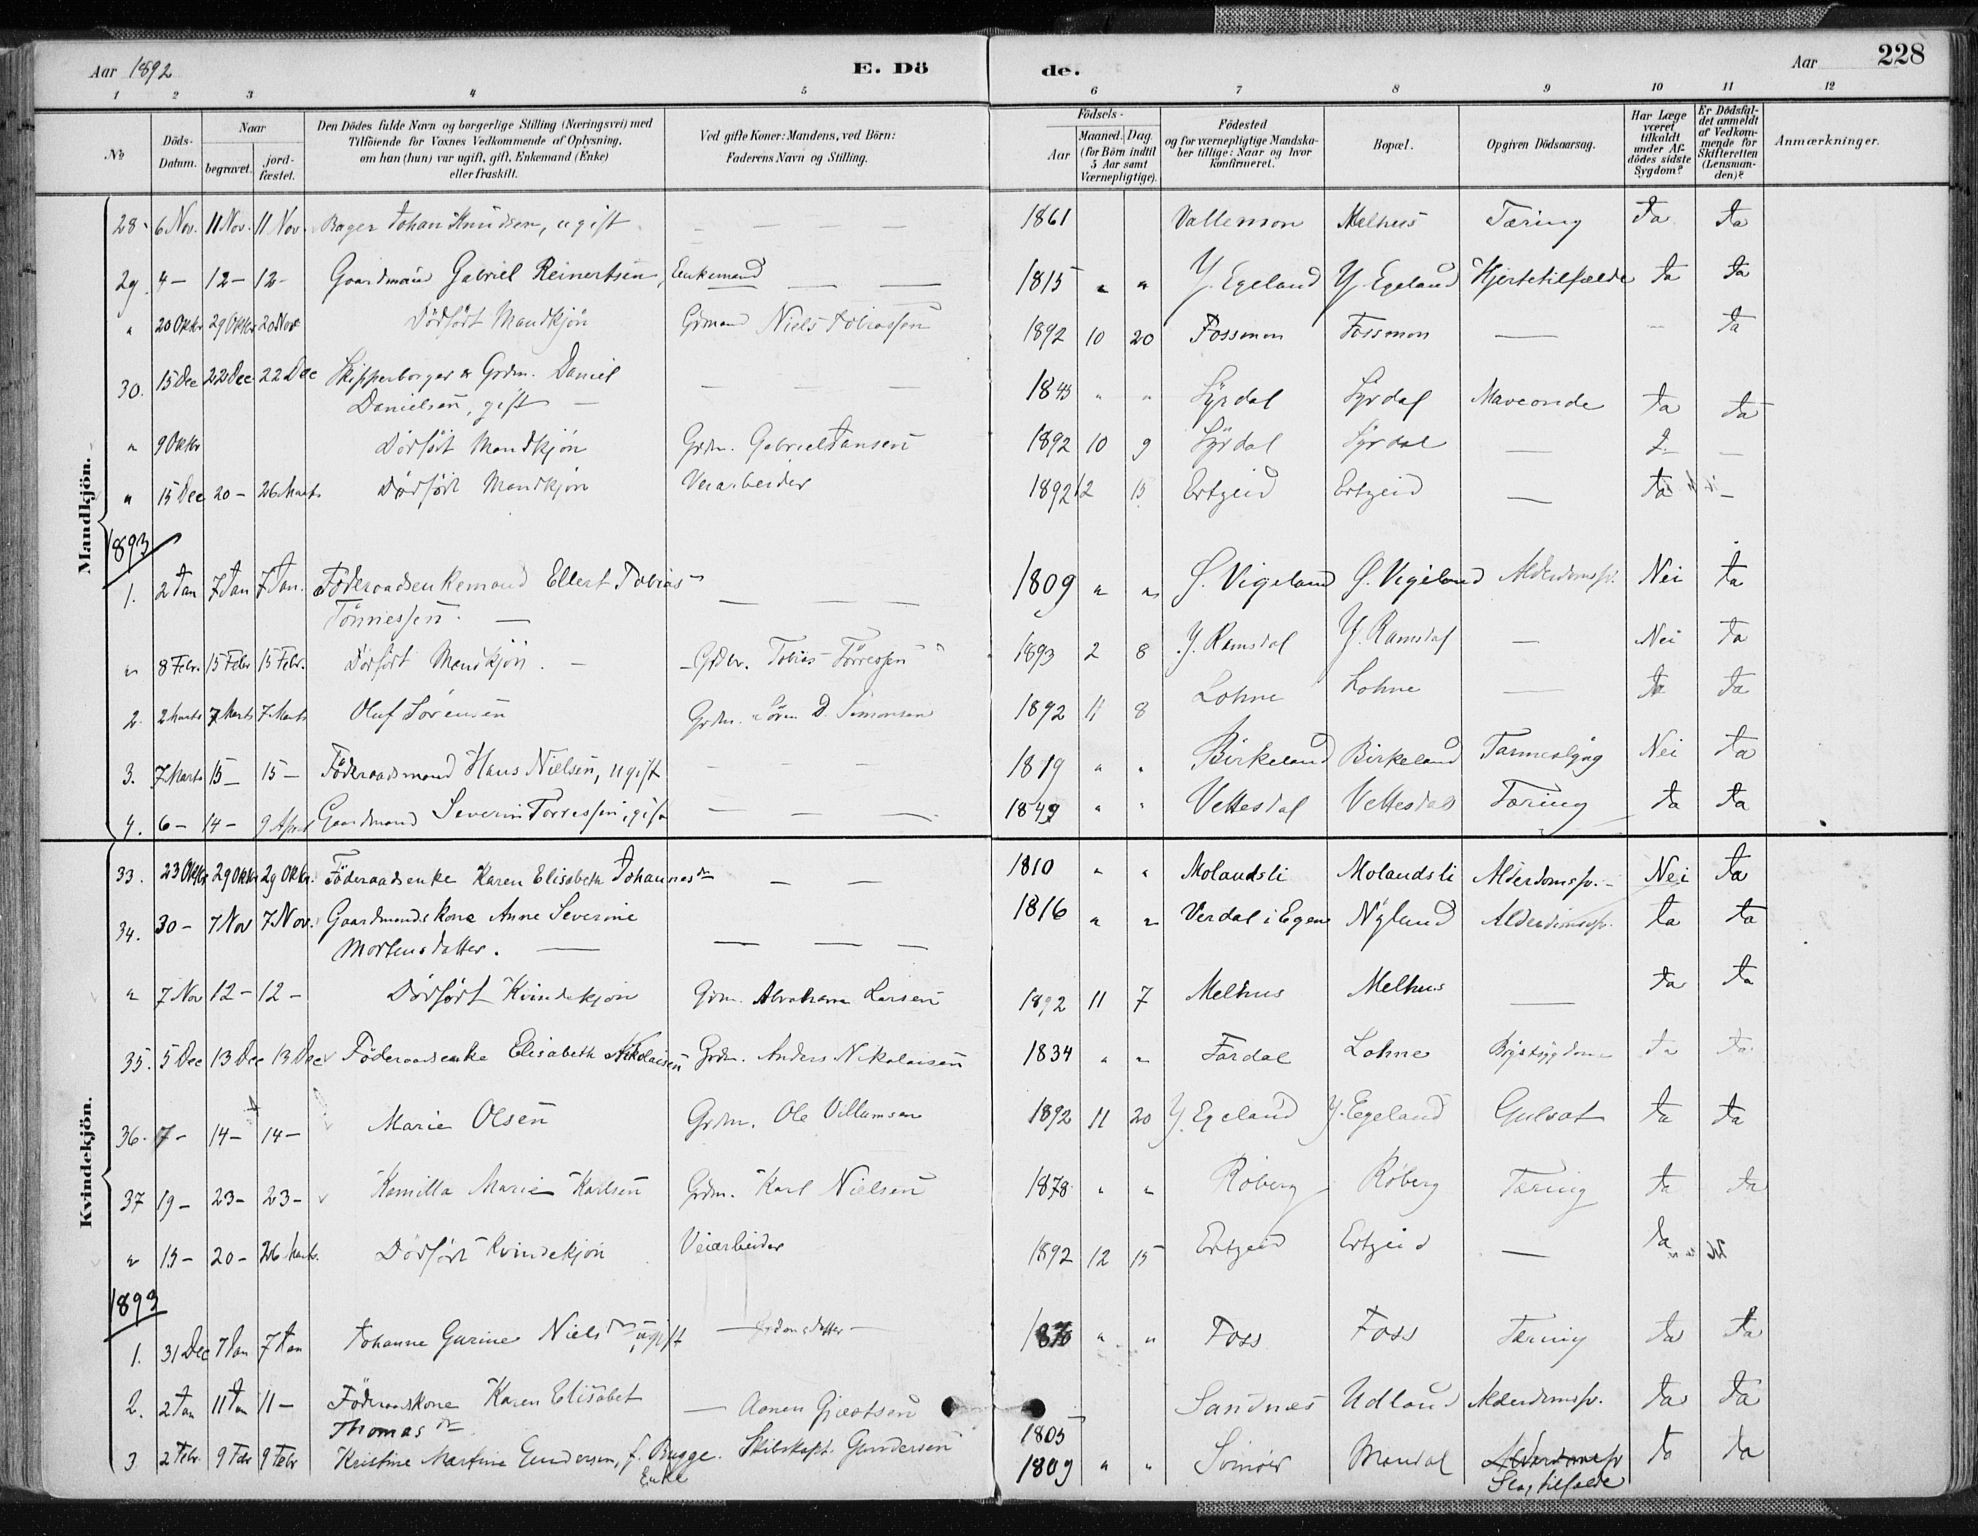 Aar 1892 E. Dö de. Aar 228
1 2 3 4 5 6 7 8 9 10 11 12
No Döds-Datum. Naar begravet. jordfæstet. Den Dödes fulde Navn og borgerlige Stilling (Næringsvei) med Tilföiende for Voxnes Vedkommende af Oplysning, om han (hun) var ugift, gift, Enkemand (Enke) eller fraskilt. Ved gifte Koner: Mandens, ved Börn: Faderens Navn og Stilling. Födsels- Aar Maaned. Dag. (for Börn indtil 5 Aar samt Værnepligtige). Födested og for værnepligtige Mandskaber tillige: Naar og hvor Konfirmeret. Bopæl. Opgiven Dödsaarsag. Har Læge været tilkaldt under Afdödes sidste Sygdom? Er Dödsfaldet anmeldt af Vedkommende for Skifteretten (Lensmanden)? Anmærkninger.
Mandkjön.
28. 6 Nov. 11 Nov. 11 Nov. Bager Johan Knudsen, ugift — — — — 1861 Vallemon Melhus Tæring Ja Ja
29. 4 — 12 — 12 — Gaardmand Gabriel Reinertsen, Enkemand — — — 1815 " " Y. Egeland Y. Egeland Hjertetilfælde Ja Ja
" 20 Oktbr 29 Oktbr 20 Nov Dödfödt Mandkjön Grdmand Niels Tobiassen 1892 10 20 Fossmon Fossmon — — Ja
30. 15 Dec 22 Dec 22 Dec Skipperborger & Grdm. Daniel — — —
Danielsen, gift — 1843 " " Lyrdal Lyrdal Maveonde Ja Ja
" 9 Oktbr Dödfödt Mandkjön Grdm. Gabriel Jansen 1892 10 9 Lyrdal Lyrdal — —
" 15 Dec 20 — 26 Marts Dödfödt Mandkjön Veiarbeider 1892 12 15 Ertzeid Ertzeid — Ja —
1893
1. 2 Jan 7 Jan 7 Jan. Föderaadsenkemand Ellert Tobias
Tönnessen. — — — — 1809 " " S. Vigeland S. Vigeland Alderdomssv. Nei Ja
" 8 Febr. 15 Febr 15 Febr. Dödfödt Mandkjön. — Grdbr. Tobias Törressen 1893 2 8 Y. Ramsdal Y. Ramsdal — Nei Ja
2. 2 Marts 7 Marts 7 Marts Oluf Sörensen Grdm. Sören D. Simonsen 1892 11 8 Lohne Lohne — Ja Ja
3. 7 Marts 15 — 15 — Föderaadsmand Hans Nielsen, ugift — — — 1819 " " Birkeland Birkeland Tarmeslyng Nei Ja
4. 6 — 14 — 9 April Gaardmand Severin Torressen, gift — — — 1849 " " Vettesdal Vettesdal Tæring Ja Ja
Kvindekjön.
33. 23 Oktbr 29 Oktbr 29 Oktbr. Föderaadsenke Karen Elisabeth Johannesdr — — 1810 " " Molandsli Molandsli Alderdomssv. — Nei Ja
34. 30 — 7 Nov 7 Nov. Gaardmandskone Anne Severine
Mortensdatter. — — — — 1816 " " Verdal i Egen Nylund Alderdomssv. Ja Ja
" 7 Nov 12 — 12 — Dödfödt Kvindekjön Grdm. Abraham Larsen 1892 11 7 Melhus Melhus — Ja Ja
35. 5 Dec 13 Dec 13 Dec Föderaadsenke Elisabeth Nikolaisen Grdm. Anders Nikolaisen 1834 " " Fardal Lohne Brystsygdom Ja Ja
36. 7 — 14 — 14 — Marie Olsen Grdm. Ole Villumsen 1892 11 20 Y. Egeland Y. Egeland Gulsot Ja Ja
37 19 — 23 — 23 — Kamilla Marie Karlsen Grdm. Karl Nielsen 1878 " " Röberg Röberg Tæring Ja Ja
" 15 — 20 — 26 Marts. Dödfödt Kvindekjön Veiarbeider 1892 12 15 Ertzeid Ertzeid — Ja
1893
1. 31 Dec 7 Jan 7 Jan Johanne Gurine Nielsdr, ugift — — " " Foss Foss Tæring Ja Ja
2. 2 Jan 11 Jan 11 — Föderaadskone Karen Elisabet
Thomasdr — Aanen Gjertsen 1805 Sandnæs Udland Alderdomssv. Ja Ja
3 2 Febr. 9 Febr 9 Febr Kristine Martine Gundersen, f. Bugge. Skibskapt. Gundersen 1809 " " Mandal Alderdomssv Ja Ja
Enke Slagtilfælde